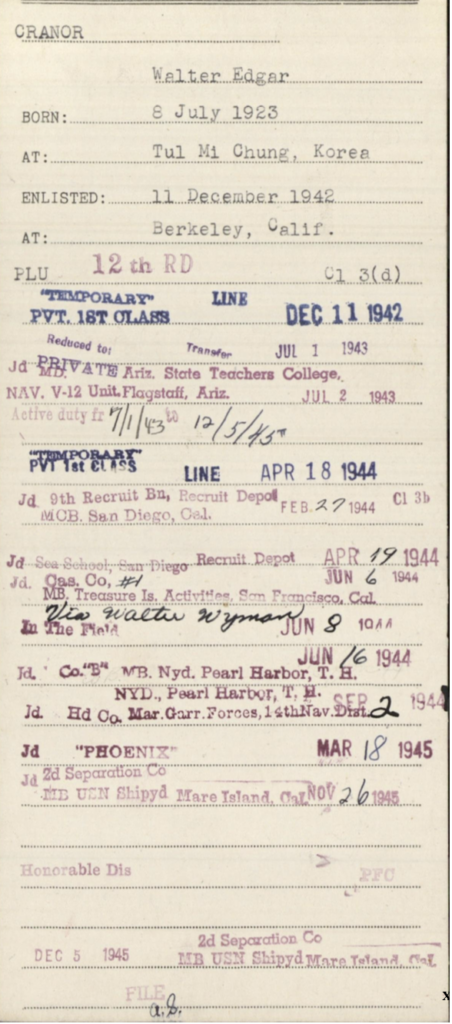 CRANOR
Walter Edgar
BORN: 8 July 1923
AT: Tul Mi Chung, Korea
ENLISTED: 11 December 1942
AT: Berkeley, Calif.
PLU 12th RD Cl 3(d)
"TEMPORARY" LINE
PVT. 1ST CLASS DEC 11 1942
Reduced to: Transfer JUL 1 1943
PRIVATE
Jd MD. Ariz. State Teachers College,
NAV. V-12 Unit, Flagstaff, Ariz. JUL 2 1943
Active duty fr 7/1/43 to 12/5/45
"TEMPORARY"
PVT 1st CLASS LINE APR 18 1944
Jd 9th Recruit Bn, Recruit Depot FEB. 27 1944 Cl 3b
MCB. San Diego, Cal.
Jd Sea School, San Diego Recruit Depot APR 19 1944
Jd. Cas. Co, #1 JUN 6 1944
MB, Treasure Is. Activities, San Francisco, Cal.
Via Walter Wyman
In The Field JUN 8 1944
JUN 16 1944
Jd. Co. "B" MB. Nyd. Pearl Harbor, T. H.
NYD., Pearl Harbor, T. H. SEP 2 1944
Jd. Hd Co. Mar. Garr. Forces, 14th Nav. Dist.
Jd "PHOENIX" MAR 18 1945
Jd 2d Separation Co
MB USN Shipyd Mare Island, Cal NOV 26 1945
Honorable Dis PFC
2d Separation Co
DEC 5 1945 MB USN Shipyd Mare Island, Cal
FILE
x